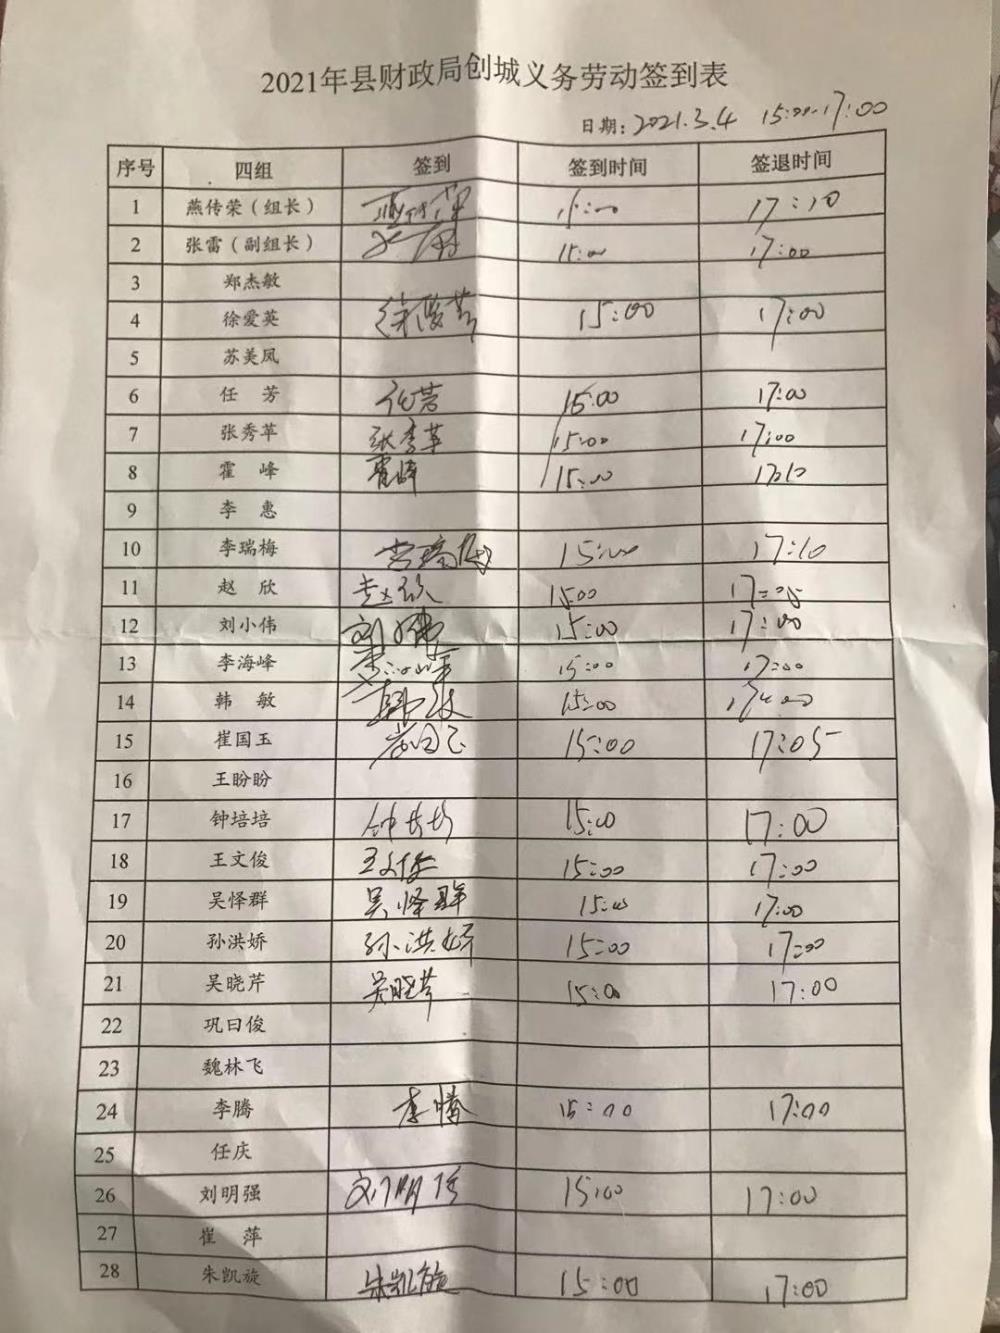 2021年县财政局创城义务劳动签到表
日期：2021.3.4 15:00-17:00
序号 四组 签到 签到时间 签退时间
1 燕传荣（组长） 燕传荣 15:00 17:10
2 张雷（副组长） 15:00 17:00
3 郑杰敏
4 徐爱英 徐爱英 15:00 17:00
5 苏美凤
6 任 芳 任芳 15:00 17:00
7 张秀苹 张秀苹 15:00 17:00
8 霍 峰 霍峰 15:00 17:10
9 李 惠
10 李瑞梅 李瑞梅 15:00 17:10
11 赵 欣 赵欣 15:00 17:05
12 刘小伟 刘小伟 15:00 17:00
13 李海峰 李海峰 15:00 17:00
14 韩 敏 韩敏 15:00 17:00
15 崔国玉 崔国玉 15:00 17:05
16 王盼盼
17 钟培培 钟培培 15:00 17:00
18 王文俊 王文俊 15:00 17:00
19 吴怿群 吴怿群 15:00 17:00
20 孙洪娇 孙洪娇 15:00 17:00
21 吴晓芹 吴晓芹 15:00 17:00
22 巩曰俊
23 魏林飞
24 李腾 李腾 15:00 17:00
25 任庆
26 刘明强 刘明强 15:00 17:00
27 崔 萍
28 朱凯旋 朱凯旋 15:00 17:00